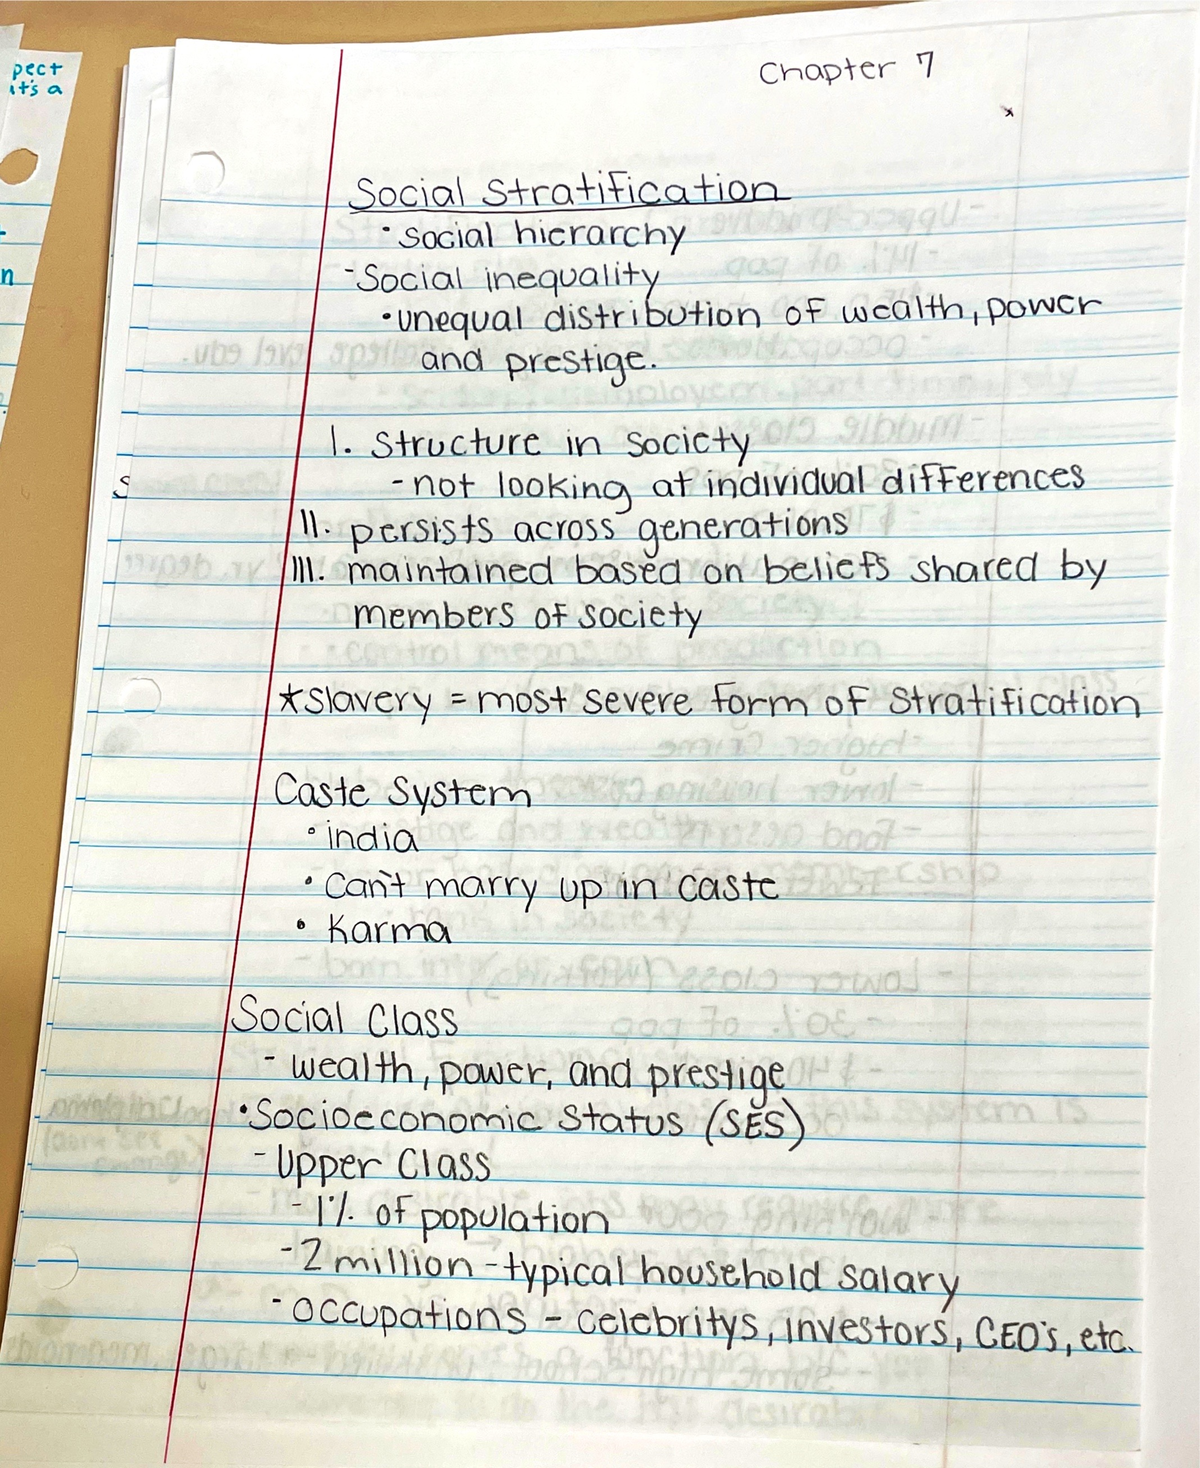 pect
it's a
n
Chapter 7
Social Stratification
• social hierarchy
- Social inequality
• unequal distribution of wealth, power
and prestige.
I. Structure in society
- not looking at individual differences
II. persists across generations
III. maintained based on beliefs shared by
members of society
S
*Slavery = most severe form of stratification
Caste System
• india
• Can't marry up in caste
• Karma
Social Class
- wealth, power, and prestige
• Socioeconomic Status (SES)
- Upper Class
- 1% of population
- 2 million - typical household salary
- occupations - celebritys, investors, CEO's, etc.